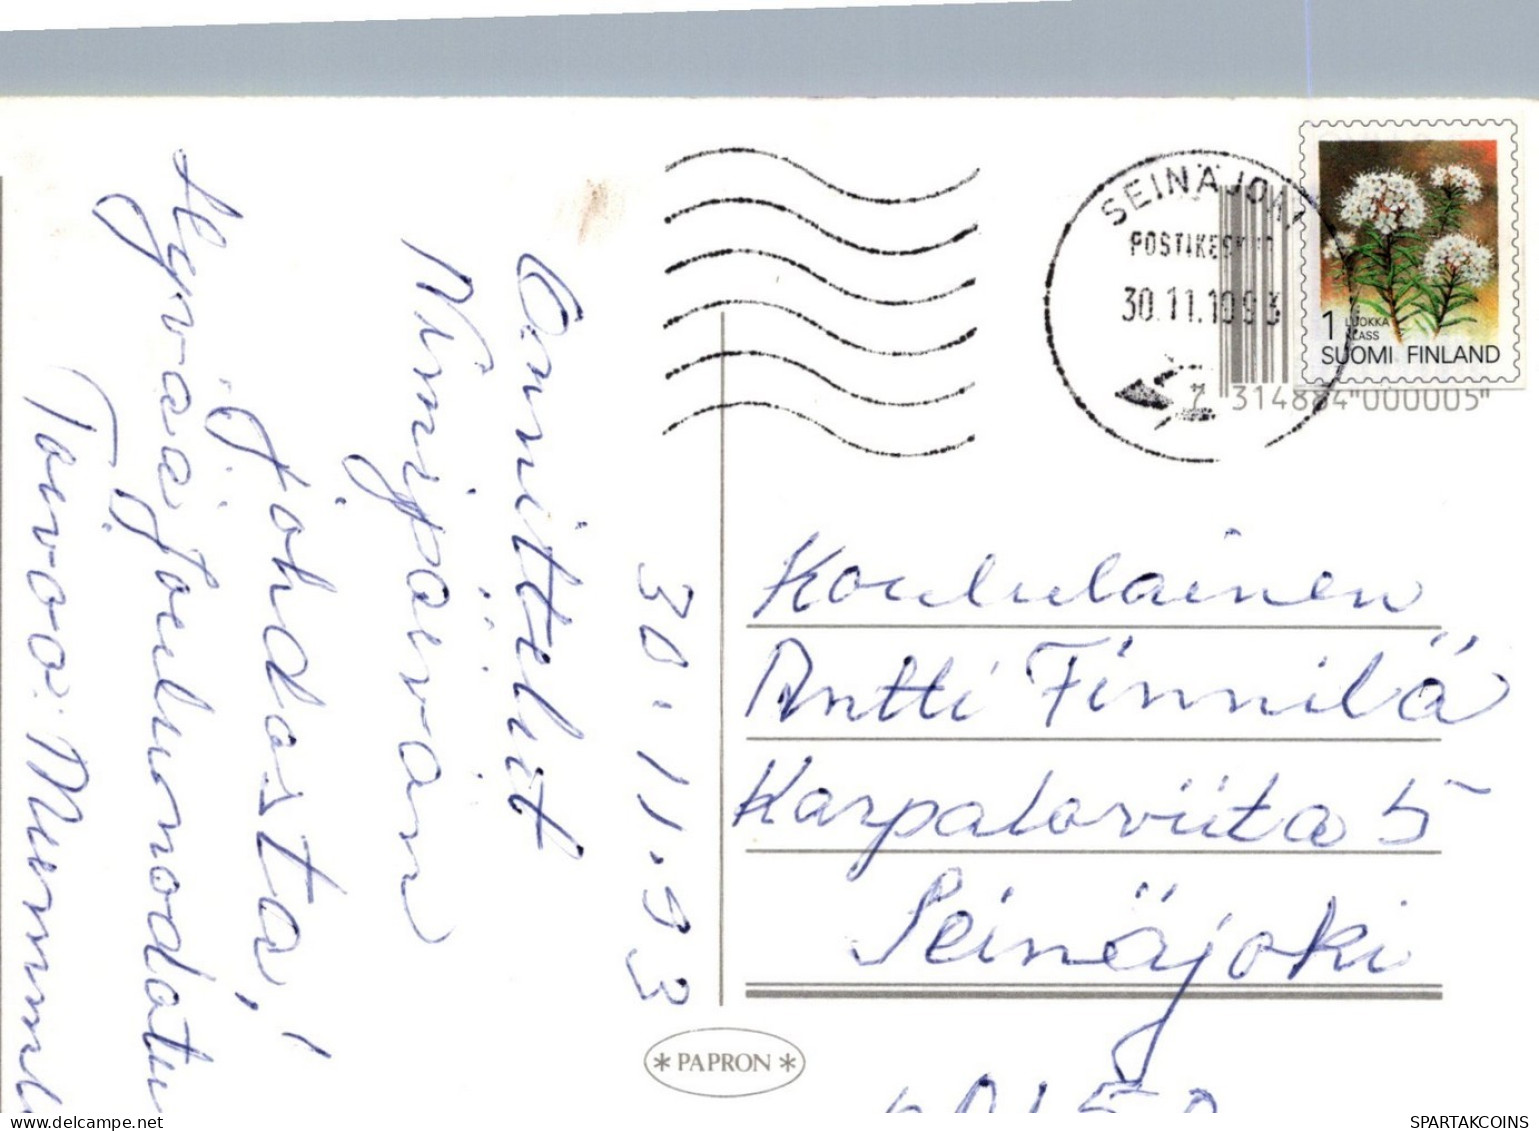 30.11.93
Onnittelut
Nimipäivän
johdosta,!
Hyvää joulunodotu
Toivoo: Mummul
SEINÄJOKI
POSTIKESKUS
30.11.1993
1 LUOKKA
KLASS
SUOMI FINLAND
7 314884"000005"
Koululainen
Antti Finnilä
Karpaloviita 5
Seinäjoki
60150
* PAPRON *
SPARTAKCOINS